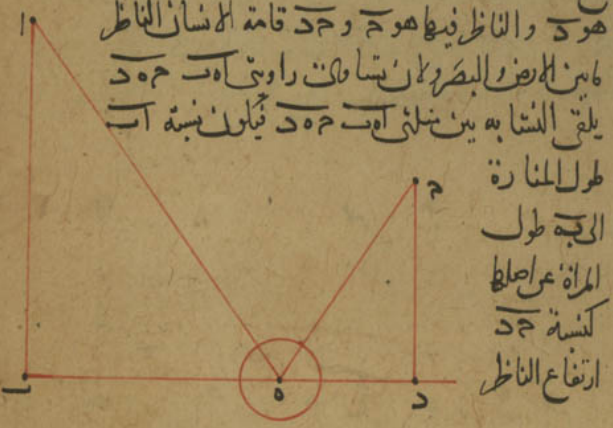 هو د والناظر فيها هو ح و ح د قامة الانسان الناظر
ما بين الارض والبصر ولان تساوت زاويتي ا ه ب ح ه د
يلقى التشابه بين مثلثي ا ه ب ح ه د فيكون نسبة ا ب
طول المنارة
الى ب ه طول
المراة عن اصلها
كنسبة ح د
ارتفاع الناظر
ا
ح
ب
ه
د